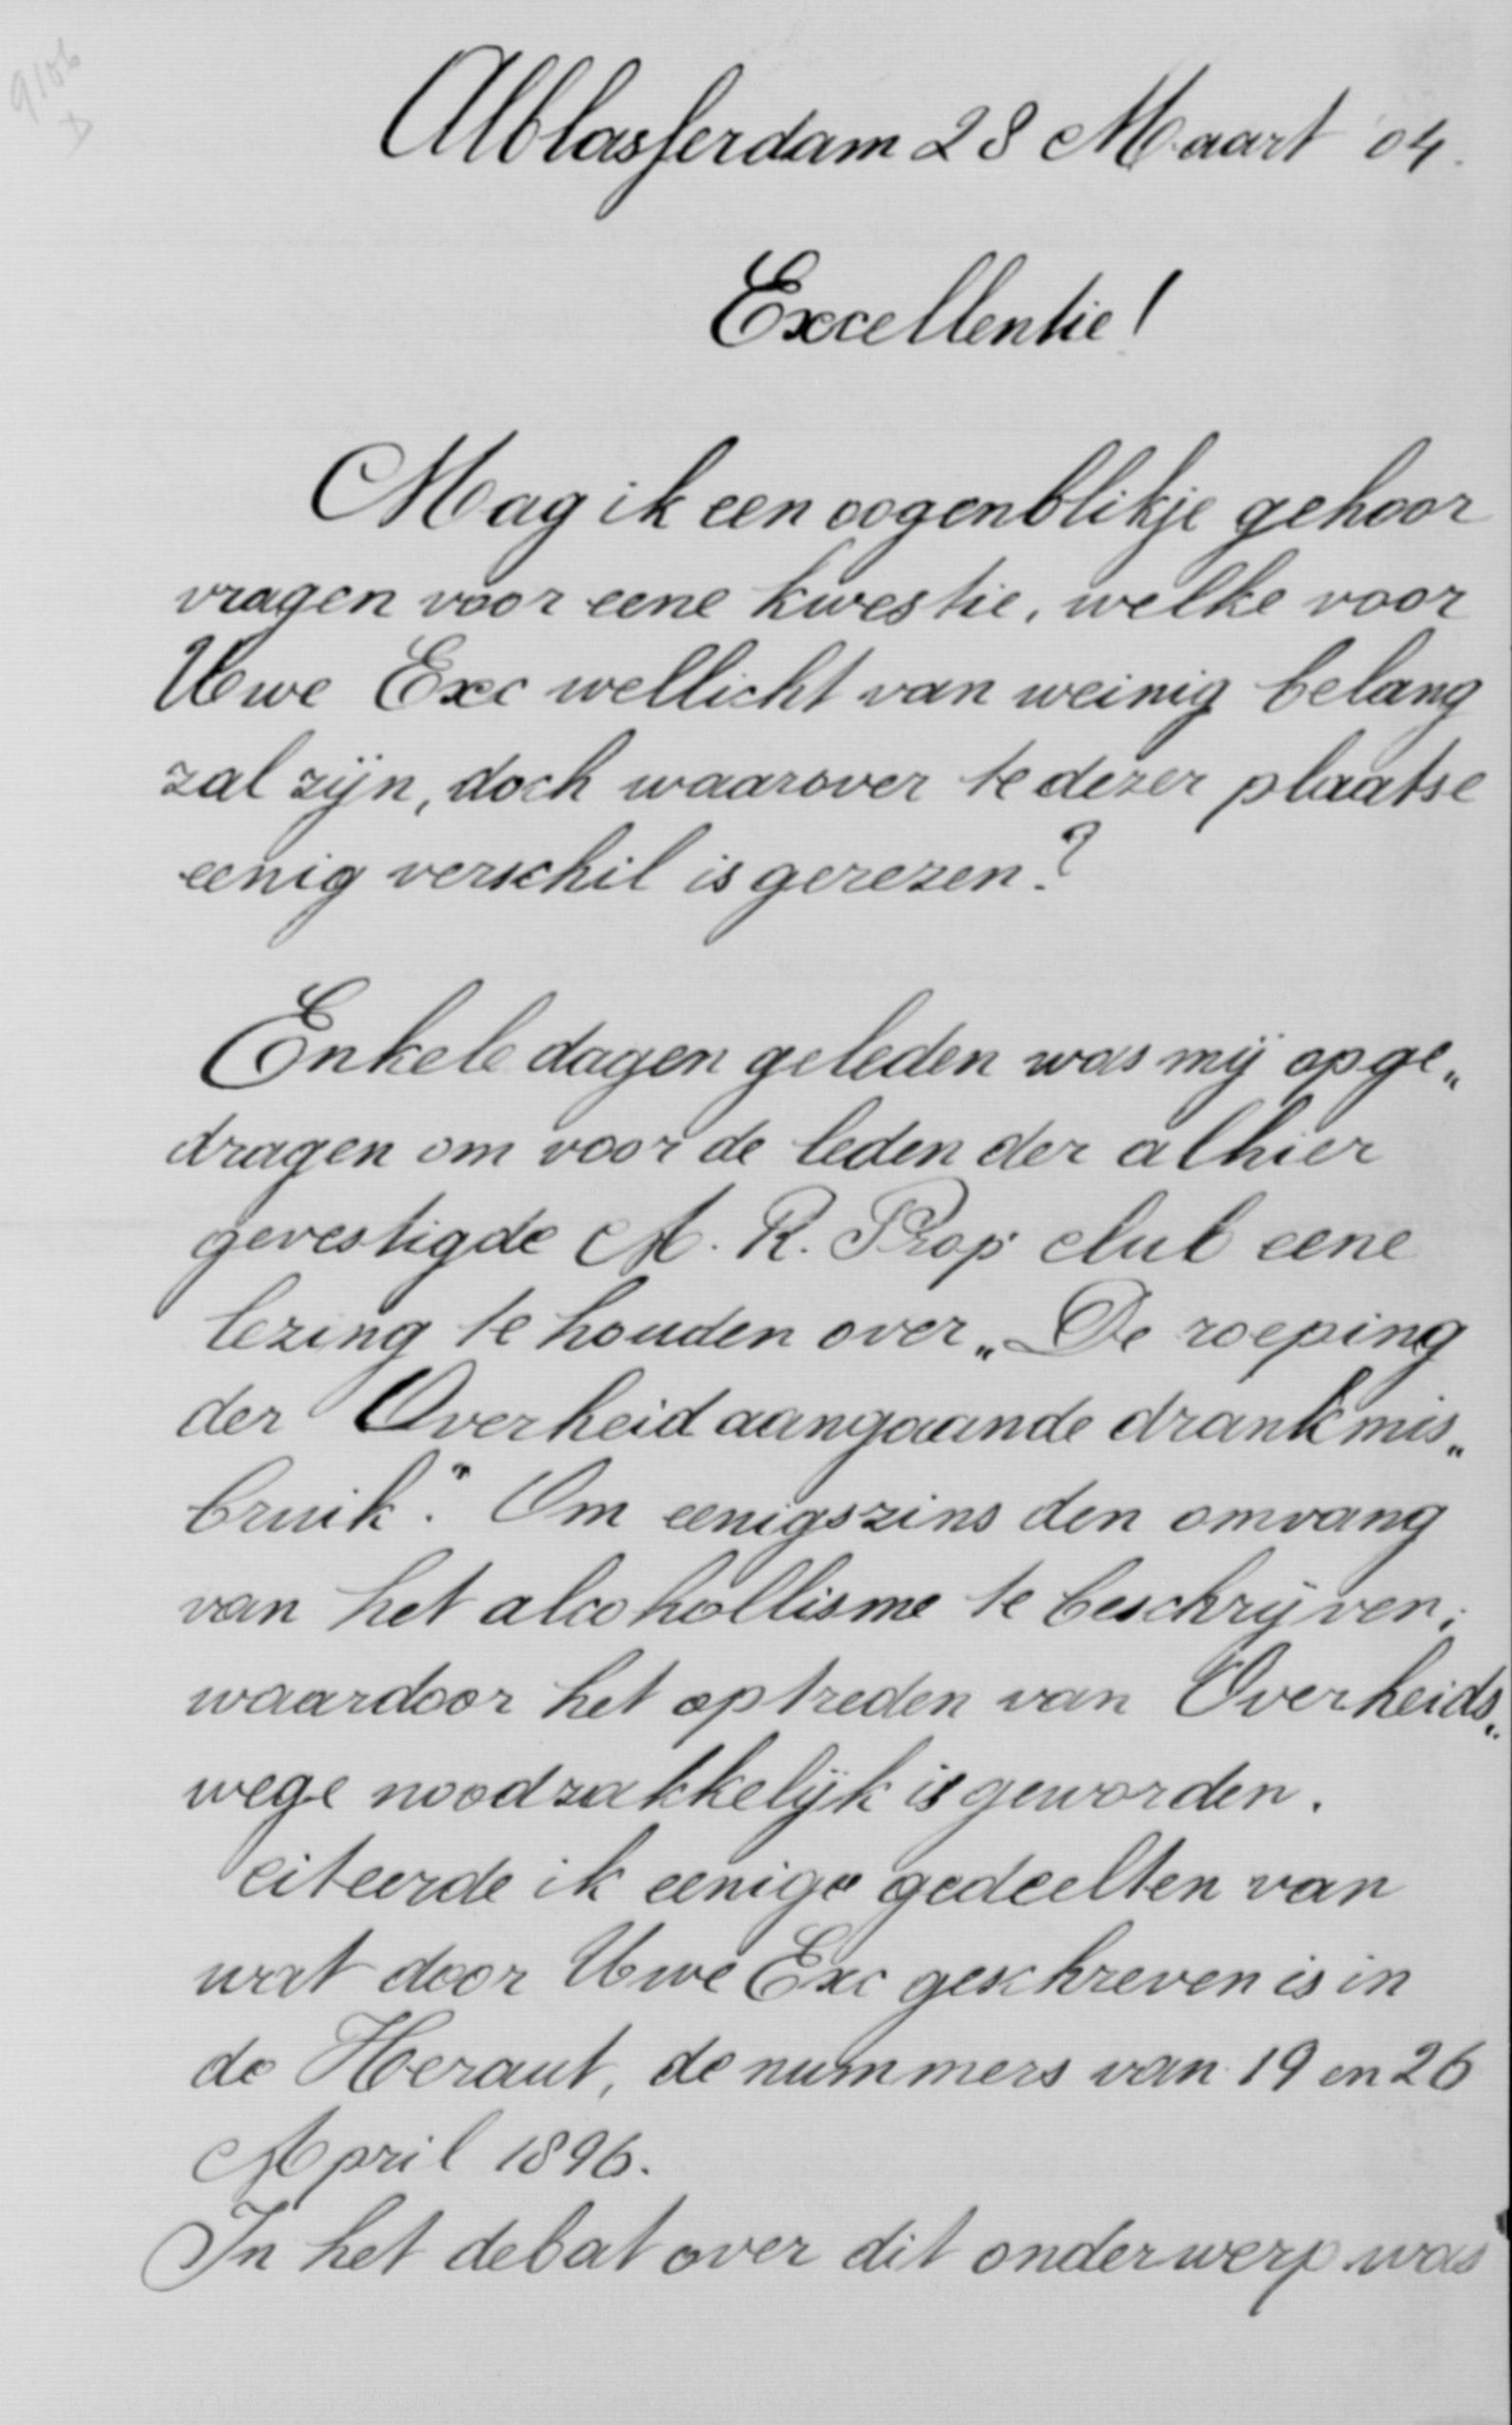 9106
Alblasserdam 28 Maart '04.
Excellentie!
Mag ik een oogenblikje gehoor
vragen voor eene kwestie, welke voor
Uwe Exc wellicht van weinig belang
zal zijn, doch waarover te dezer plaatse
eenig verschil is gerezen?
Enkele dagen geleden was mij opge„
dragen om voor de leden der alhier
gevestigde A. R. Prop club eene
lezing te houden over „De roeping
der Overheid aangaande drankmis„
bruik." Om eenigszins den omvang
van het alcohollisme te beschrijven,
waardoor het optreden van Overheids„
wege noodzakkelijk is geworden.
citeerde ik eenige gedeelten van
wat door Uwe Exc geschreven is in
de Heraut, de nummers van 19 en 26
April 1896.
In het debat over dit onderwerp was